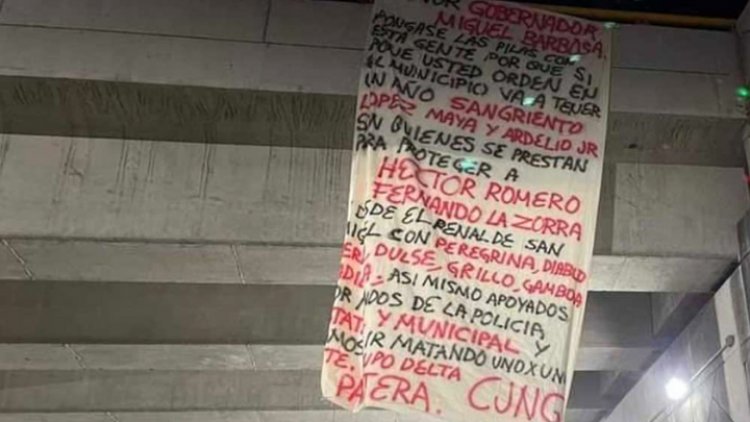 GOBERNADOR
MIGUEL BARBOSA.
PONGASE LAS PILAS CON
ESTA GENTE POR QUE SI
PONE USTED ORDEN EN
EL MUNICIPIO VA A TENER
UN AÑO SANGRIENTO
LOPEZ MAYA Y ARDELIO JR
SN QUIENES SE PRESTAN
PRA PROTEGER A
HECTOR ROMERO
FERNANDO LA ZORRA
SDE EL PENAL DE SAN
IGEL CON PEREGRINA, DIABLO
DULSE, GRILLO, GAMBOA
ASI MISMO APOYADOS
OR DOS DE LA POLICIA,
TATA Y MUNICIPAL Y
MOS IR MATANDO UNO X UN
TE. UPO DELTA
PATERA. CJNG